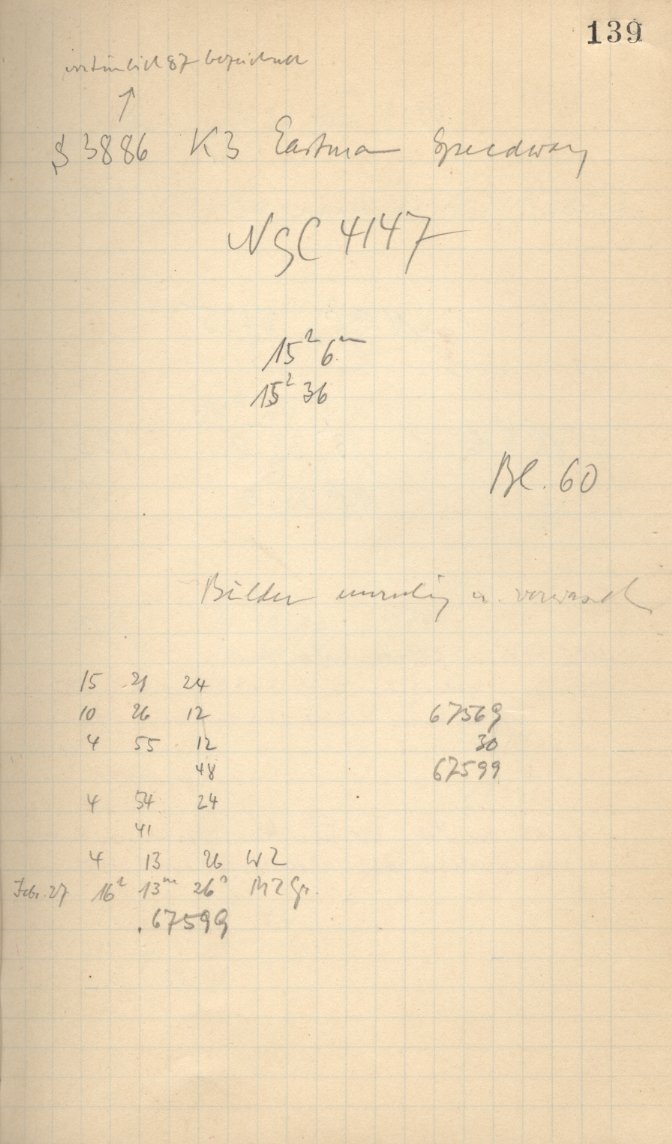 139
irrtümlich 87 bezeichnet
↑
S 3886 K3 Eastman Speedway
NGC 4147
15ʰ 6ᵐ
15ʰ 36
Bl. 60
Bilder unruhig u. verwaschen
15 21 24
10 26 12 67569
4 55 12 30
48 67599
4 54 24
41
4 13 26 WZ
Febr. 27 16ʰ 13ᵐ 26ˢ MZGr.
.67599